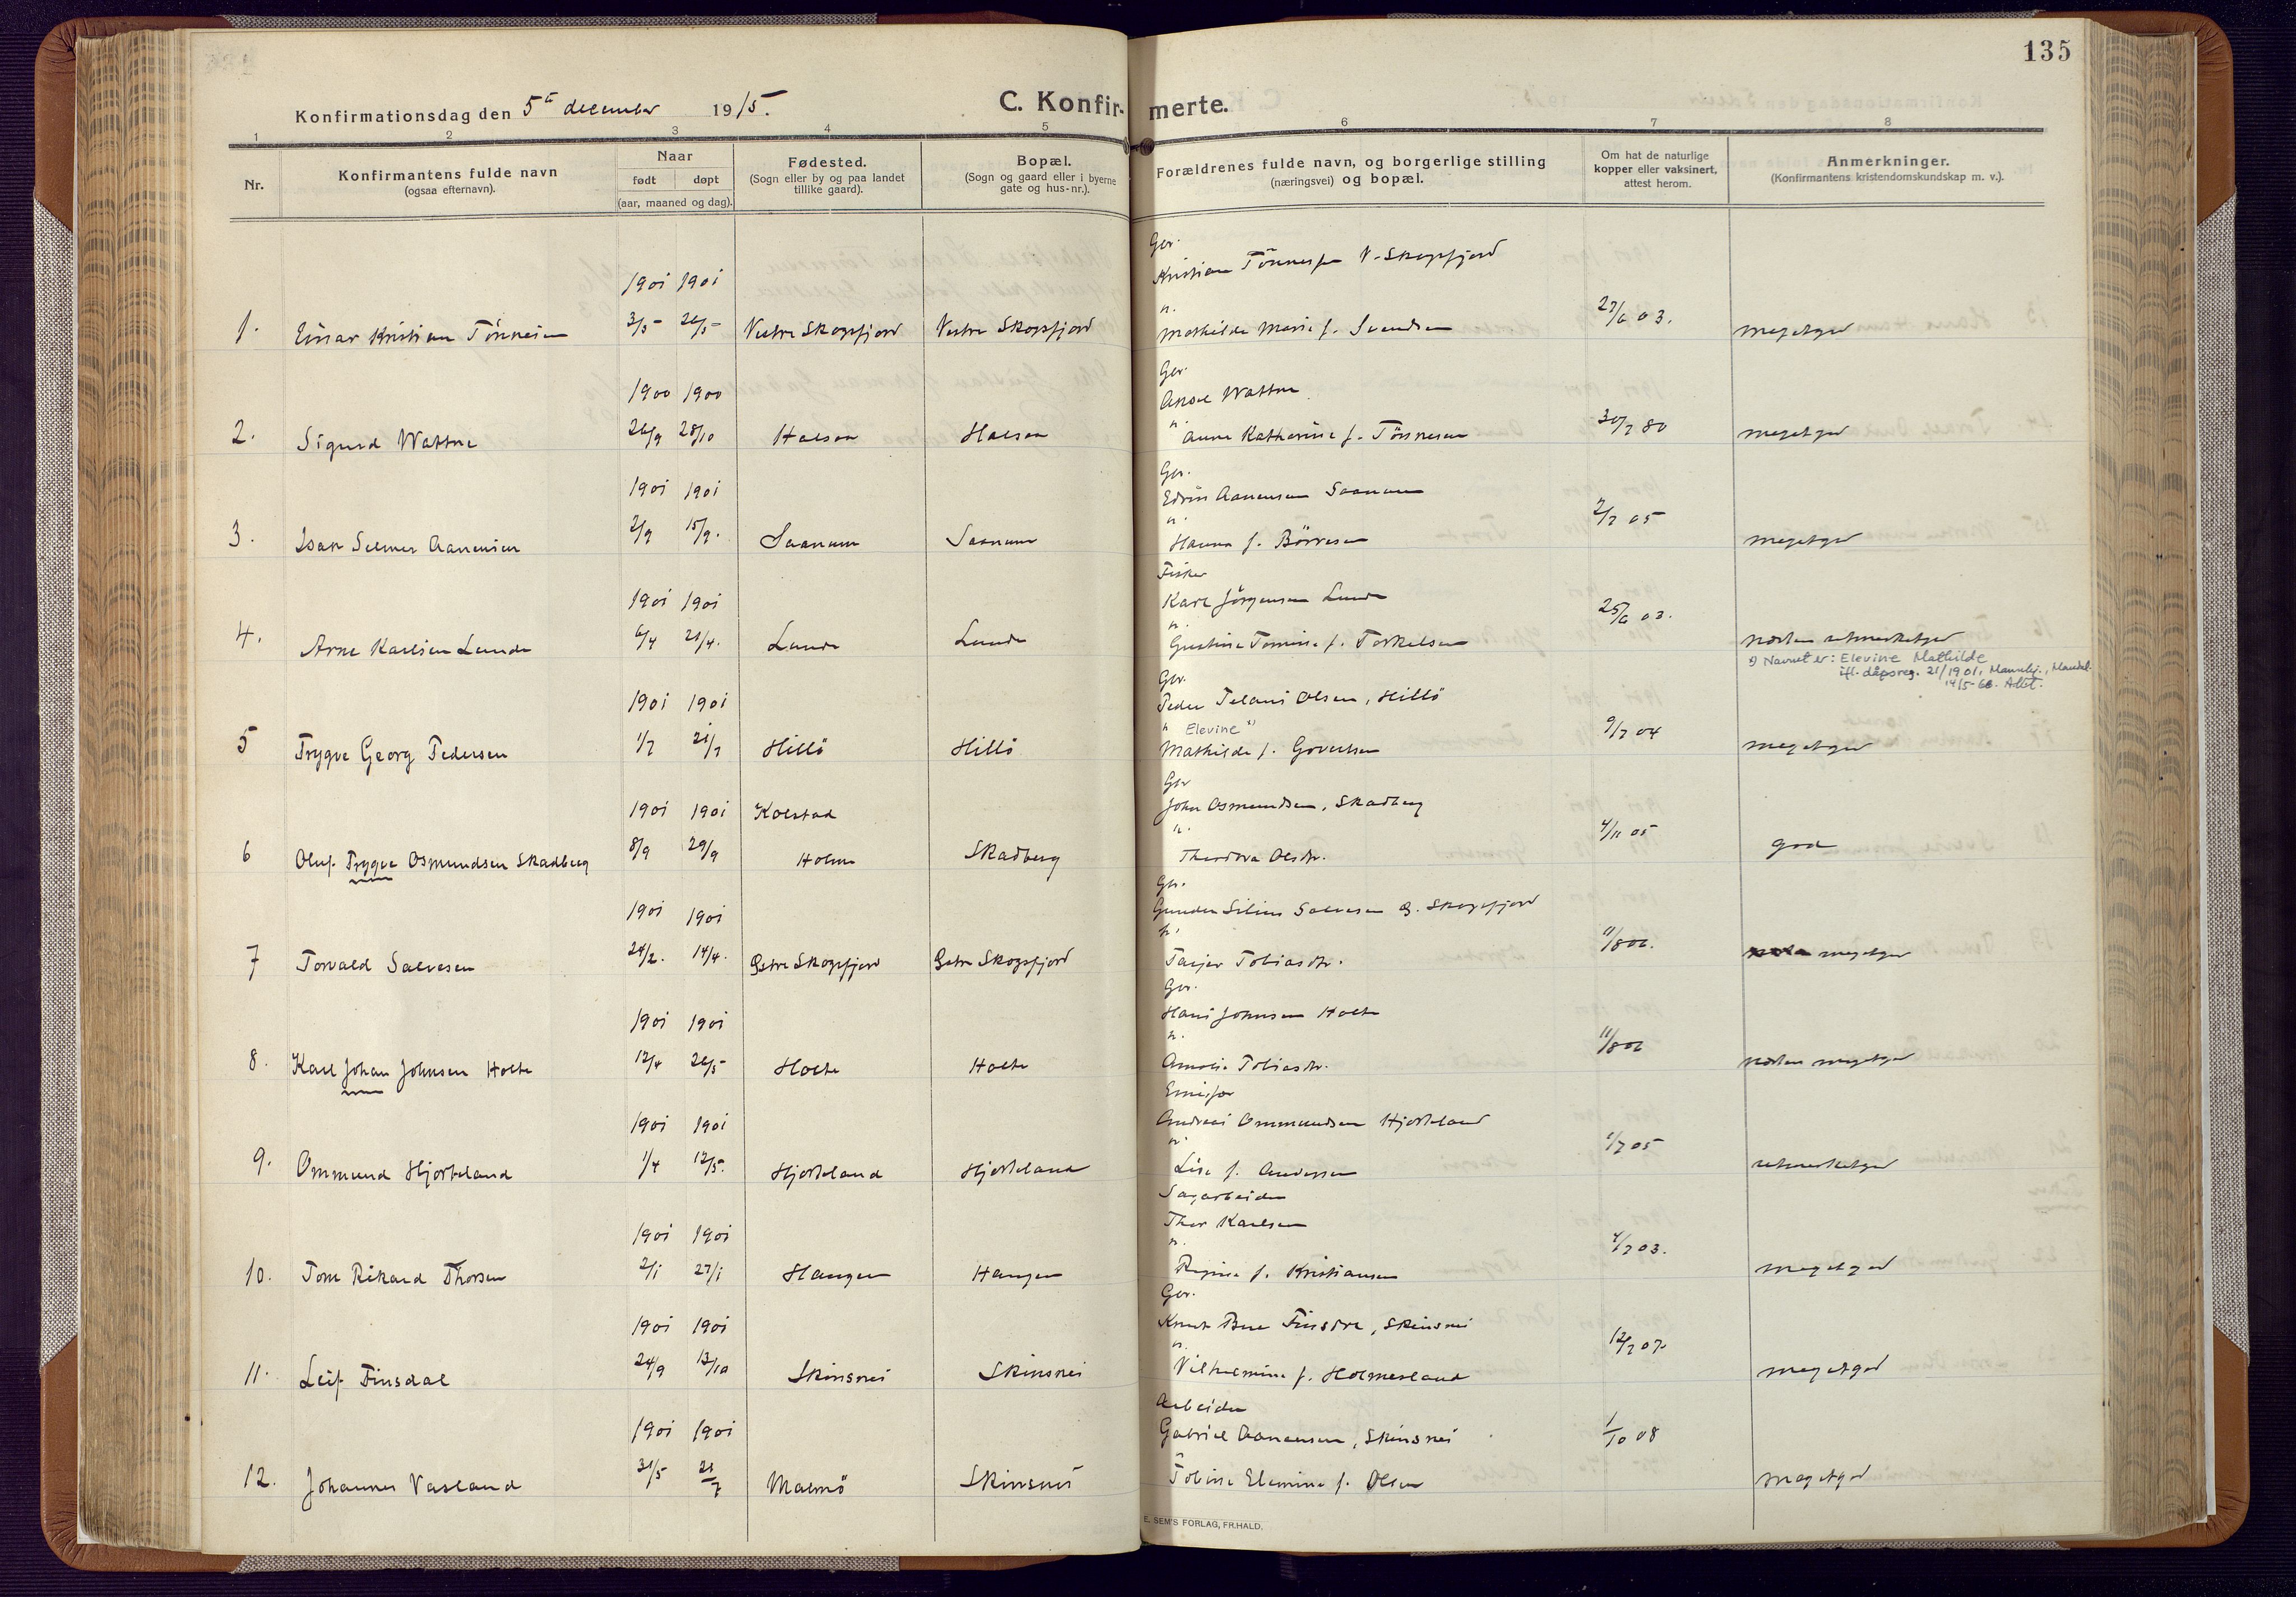 135
Konfirmationsdag den 5te december 1915.
C. Konfirmerte.
1 2 3 4 5 6 7 8
Nr.
Konfirmantens fulde navn
(ogsaa efternavn).
Naar
født døpt
(aar, maaned og dag).
Fødested.
(Sogn eller by og paa landet
tillike gaard).
Bopæl.
(Sogn og gaard eller i byerne
gate og hus-nr.).
Forældrenes fulde navn, og borgerlige stilling
(næringsvei) og bopæl.
Om hat de naturlige
kopper eller vaksinert,
attest herom.
Anmerkninger.
(Konfirmantens kristendomskundskap m. v.).
Gbr.
Kristian Tönnesen V-Skogsfjord
1901 1901
h.
1. Einar Kristian Tönnesen 3/5 26/5 Vestre Skogsfjord Vestre Skogsfjord Mathilde Marie f. Svendsen 27/6 03. megetgod
Gbr.
1900 1900 Aksel Wattne
2. Sigurd Wattne 26/9 28/10 Halsen Halsen h. Anne Katherine f. Tönnesen 30/7 80 megetgod
Gbr.
1901 1901 Edvin Aanensen Saanum
h.
3. Isak Selmer Aanensen 2/9 15/9. Saanum Saanum Hanna f. Börresen 2/7 05 megetgod
Fisker
1901 1901 Karl Jörgensen Lunde
h.
4. Arne Karlsen Lunde 6/4 21/4. Lunde Lunde Gustine Tomine f. Torkelsen 25/6 03. næsten utmerketgod
*) Navnet er: Elevine Mathilde
ifl. dåpsreg. 21/1901, Mannskj., Mandal.
14/5-66. Attt.
Gbr.
1901 1901 Peder Telani Olsen, Hillö
h Elevine *)
5 Trygve Georg Pedersen 1/7 21/7 Hillö Hillö Mathilde f. Govertsen 9/7 04 megetgod
Gbr
1901 1901 Kolstad John Osmundsen, Skadberg
h.
6 Oluf Trygve Osmundsen Skadberg 8/9 29/9 Holum Skadberg Theodora Olsdtr. 4/11 05 god
Gbr.
1901 1901 Gunder Silius Salvesen Ø. Skogsfjord
h.
7 Torvald Salvesen 24/2. 14/4. Østre Skogsfjord Østre Skogsfjord Tarjer Tobiasdtr. 11/8 06. megetgod
Gbr.
1901 1901 Hans Johnsen Holte
h.
8. Karl Johan Johnsen Holte 12/4 26/5 Holte Holte Amalia Tobiasdtr. 11/8 06 næsten megetgod
Emissær
1901 1901 Andreas Ommundsen Hjorteland
h.
9. Ommund Hjorteland 1/4 12/5. Hjorteland Hjorteland Lise f. Andersen 1/7 05 utmerketgod
Sagarbeider
1901 1901 Thor Karlsen
h.
10. Tom Rikard Thorsen 2/1 27/1 Haugen Haugen Regine f. Kristiansen 4/7 03. megetgod
Gbr.
1901 1901 Knut Bue Finsdal, Skinsnes
h.
11. Leif Finsdal 24/9 13/10 Skinsnes Skinsnes Vilhelmine f. Holmesland 12/7 07 megetgod
Arbeider
1901 1901 Gabriel Aanensen, Skinsnes
12. Johannes Vasland 31/5 21/7 Malmö Skinsnes Tobine Elamine f. Olsen 1/10 08 megetgod
E. SEM'S FORLAG, FR.HALD.